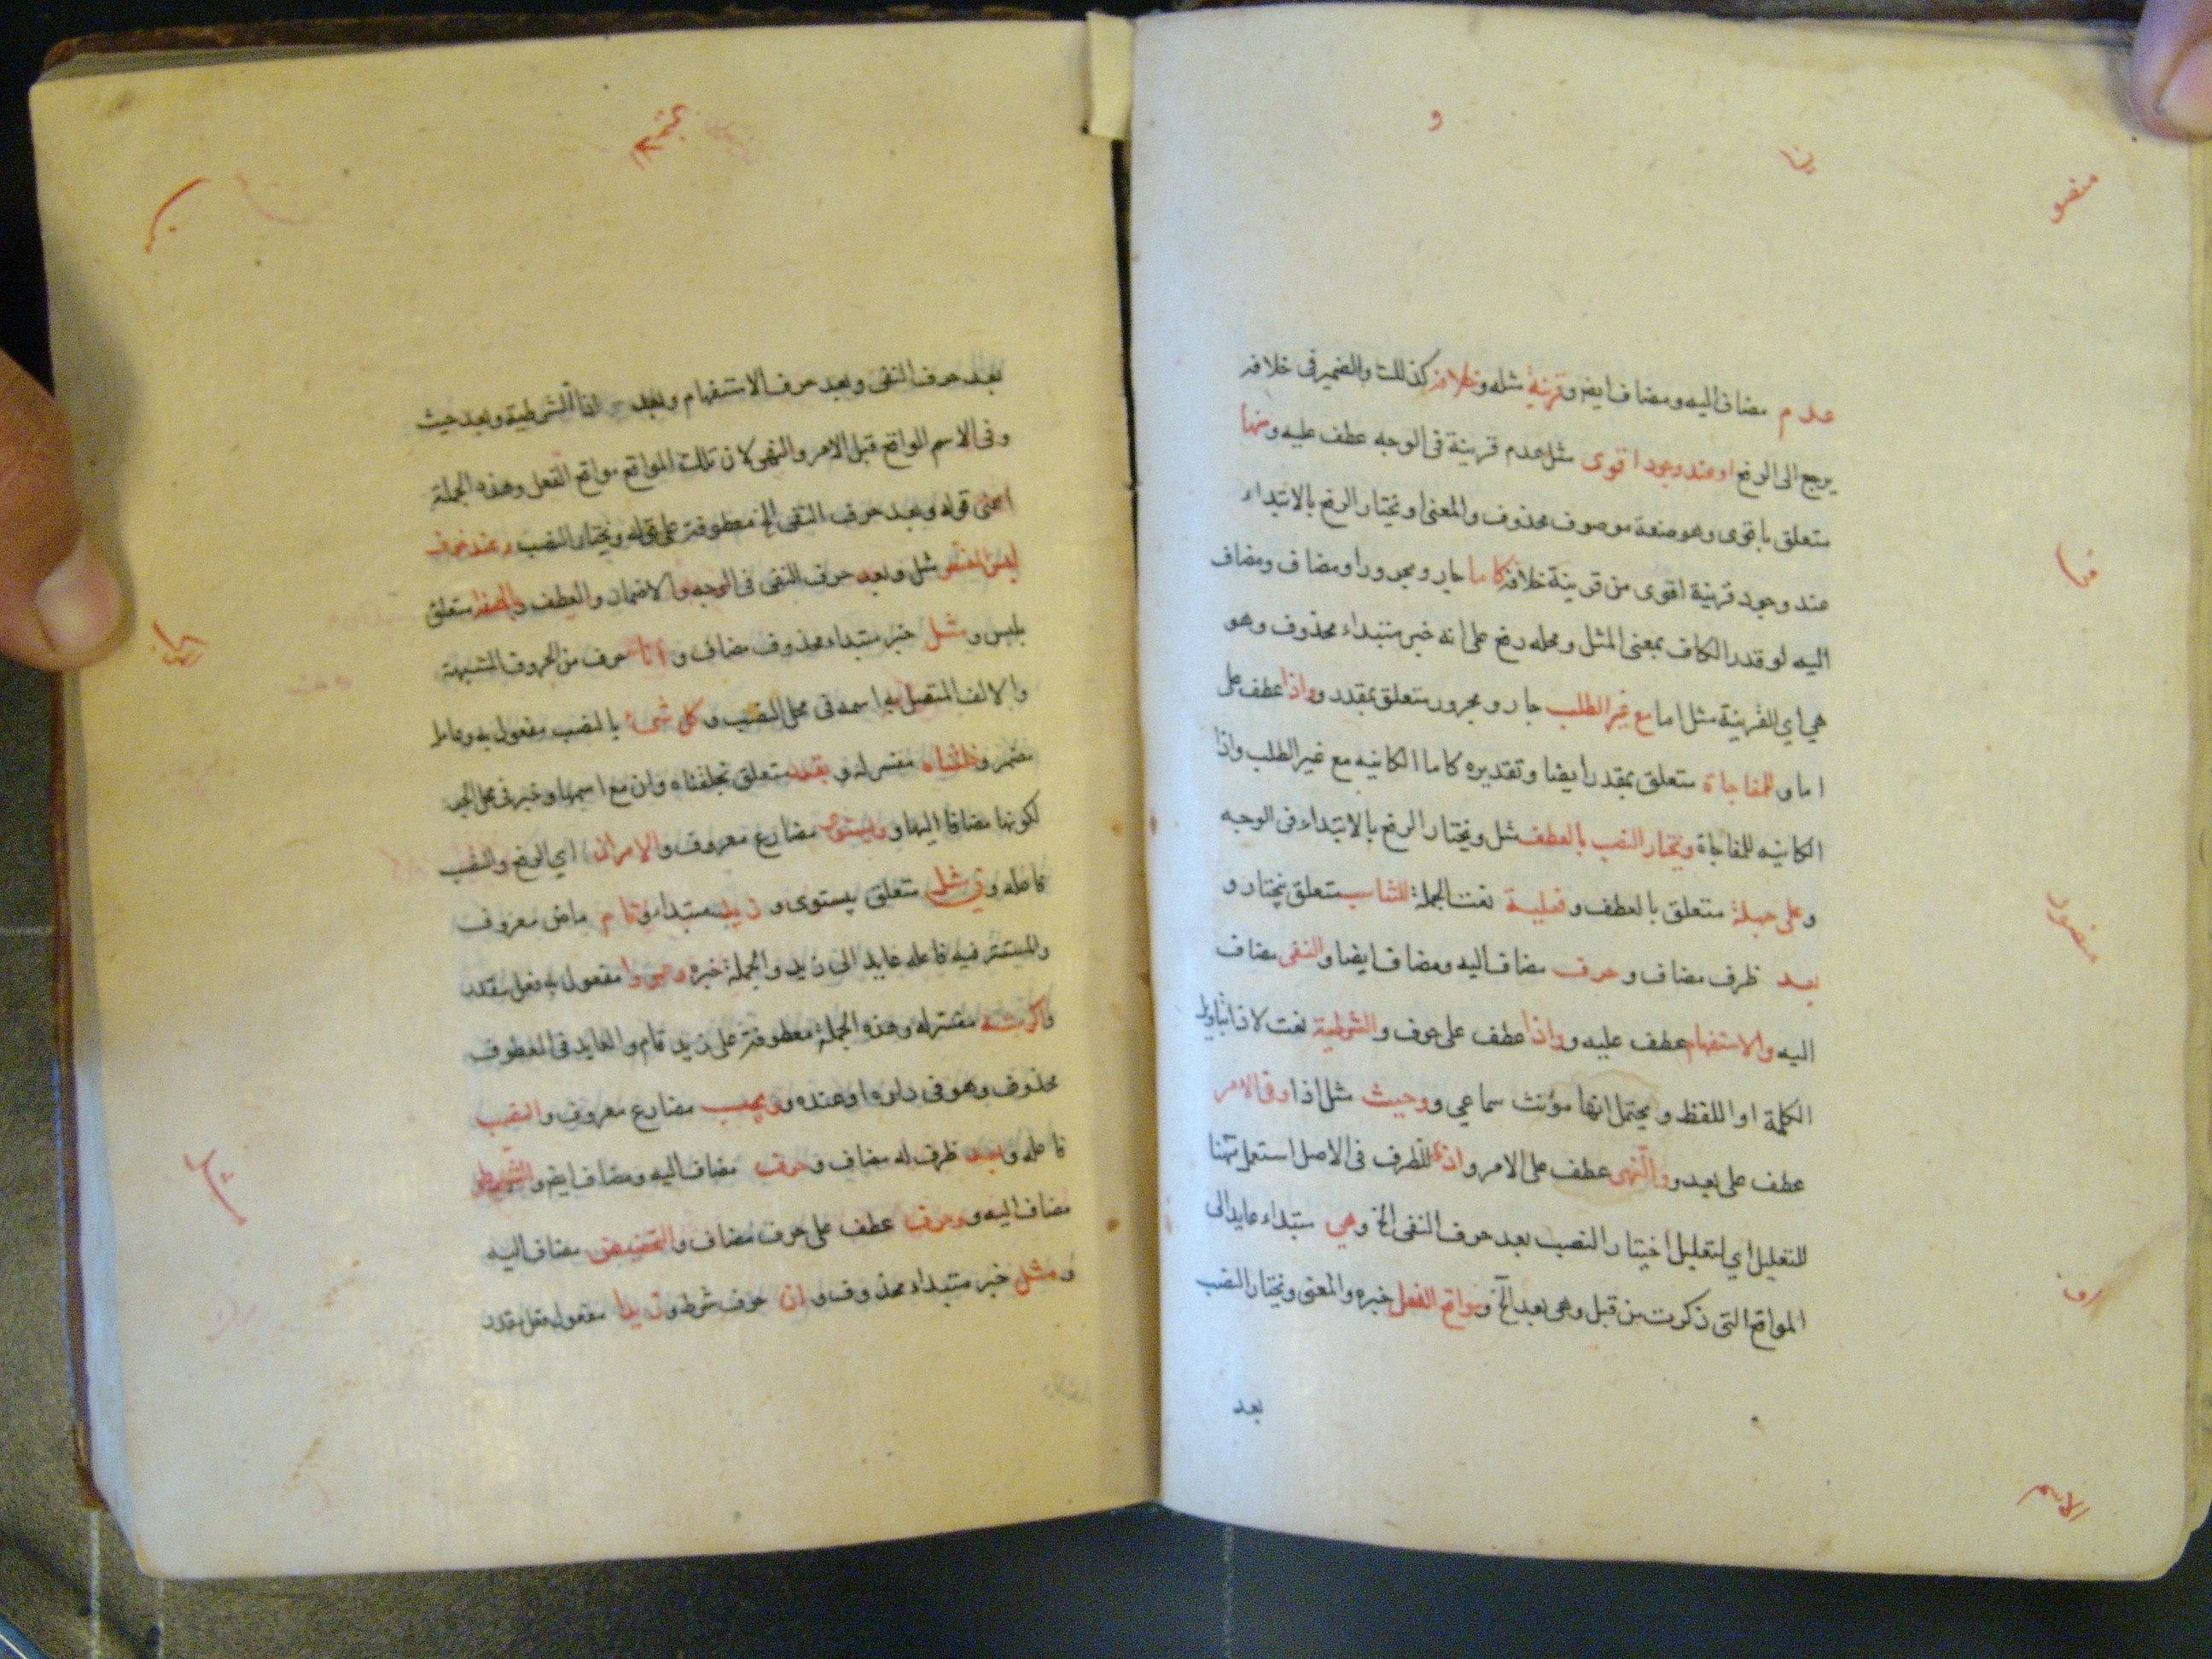 عدم مضاف اليه ومضاف ايضا وقرينة مثله وخلافه كذلك والضمير فى خلافه
يرجع الى الرفع او عند وجود اقوى مثل عدم قرينة فى الوجه عطف عليه ومنها
متعلق باقوى وهو صفة موصوف محذوف والمعنى او يختار الرفع بالابتداء
عند وجود قرينة اقوى من قرينة خلافه كاما جار ومجرور او مضاف ومضاف
اليه لو قدر الكاف بمعنى المثل ومحله رفع على انه خبر مبتداء محذوف وهو
هي اي القرينة مثل اما مع غير الطلب جار ومجرور متعلق بمقدر وواذا عطف على
اما وللمفاجاة متعلق بمقدر ايضا وتقديره كاما الكاينه مع غير الطلب واذا
الكاينه للمفاجاة ويختار النصب بالعطف مثل ويختار الرفع بالابتداء فى الوجه
وعلى جملة متعلق بالعطف وفعلية نعت الجملة للتناسب متعلق بيختار و
بعد ظرف مضاف وحرف مضاف اليه ومضاف ايضا والنفى مضاف
اليه والاستفهام عطف عليه وواذا عطف على حرف والشرطية نعت لاذا بتاويل
الكلمة او اللفظ ويحتمل انها مؤنث سماعي ووحيث مثل اذا وفى الامر
عطف على بعد ووالنهى عطف على الامر واذ للظرف فى الاصل استعمل ههنا
للتعليل اي لتعليل اختيار النصب بعد حرف النفى الخ وهي مبتداء عايد الى
المواقع التى ذكرت من قبل وهى بعد الخ ومواقع الفعل خبره والمعنى ويختار النصب
بعد
بعد حرف النفى وبعد حرف الاستفهام وبعد اذا الشرطية وبعد حيث
وفى الاسم الواقع قبل الامر والنهى لان تلك المواقع مواقع الفعل وهذه الجملة
اعنى قوله وبعد حرف النفى الخ معطوفة على قوله ويختار النصب وعند خوف
لبس المفسر مثل وبعد حرف النفى فى الوجه والعطف وبالصفة متعلق
بلبس ومثل خبر مبتداء محذوف مضاف وانا حرف من الحروف المشبهة
والالف المتصل به اسمه فى محل النصب وكل شئ بالنصب مفعول به وعامله
مضمر وخلقناه مفسر له وبقدر متعلق بخلقناه وان مع اسمها وخبره فى محل الجر
لكونها مضافا اليها وويستوى مضارع معروف والامران اي الرفع والنصب
فاعله وفي مثل متعلق بيستوى وزيد مبتداء وقام ماض معروف
والمستتر فيه فاعله عايد الى زيد والجملة خبره وعمروا مفعول به فعل مقدر
واكرمته مفسر له وهذه الجملة معطوفة على زيد قام والعايد فى المعطوف
محذوف وهو فى داره او عنده وويجب مضارع معروف والنصب
فاعله وبعد ظرف له مضاف وحرف مضاف اليه ومضاف ايضا والشرط
مضاف اليه ووحرف عطف على حرف مضاف والتحضيض مضاف اليه
ومثل خبر مبتداء محذوف وان حرف شرط وزيدا مفعول فعل مقدر